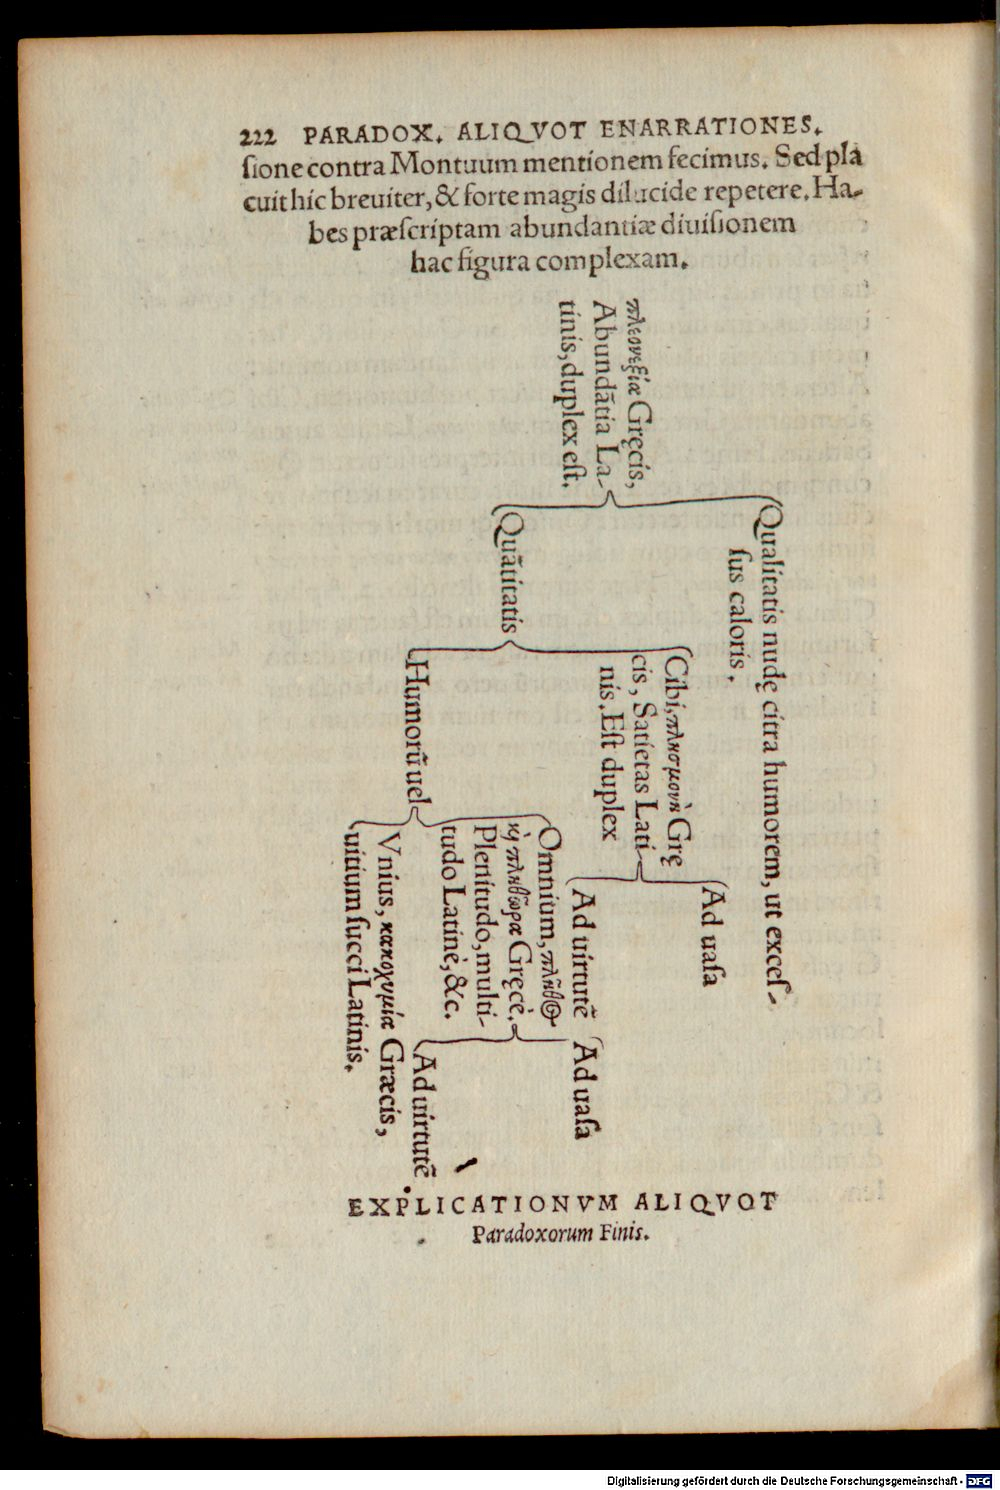 222 PARADOX. ALIQVOT ENARRATIONES.
ſione contra Montuum mentionem fecimus. Sed pla
cuit hic breuiter, & forte magis dilucide repetere. Ha-
bes præſcriptam abundantiæ diuiſionem
hac figura complexam.
πλεονεξία Gręcis,
Abundātia La-
tinis, duplex eſt.
Qualitatis nudę citra humorem, ut exceſ-
ſus caloris.
Quātitatis
Cibi, πλησμονὴ Grę
cis, Satietas Lati-
nis. Eſt duplex
Ad uaſa
Ad uirtutē
Humorū uel
Omnium, πλῆθος
καὶ πληθώρα Gręcè.
Plenitudo, multi-
tudo Latinè, &c.
Ad uaſa
Ad uirtutē
Vnius, κακοχυμία Græcis,
uitium ſucci Latinis.
EXPLICATIONVM ALIQVOT
Paradoxorum Finis.
Digitalisierung gefördert durch die Deutsche Forschungsgemeinschaft - DFG